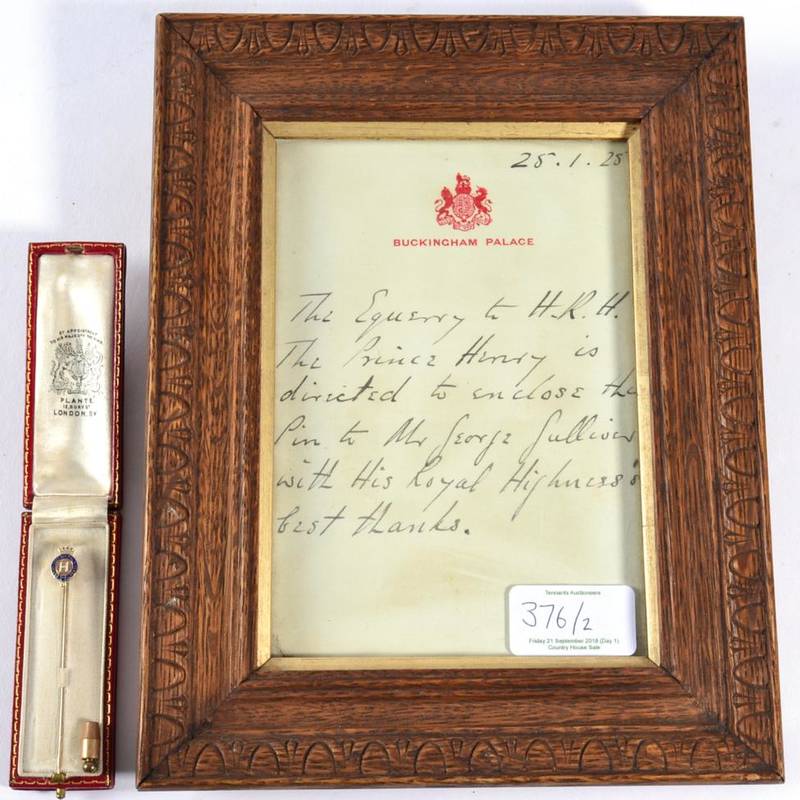 25.1.25
BUCKINGHAM PALACE
The Equerry to H.R.H.
The Prince Henry is
directed to enclose the
Pin to Mr George Gulliver
with His Royal Highness's
best thanks.
BY APPOINTMENT
TO HIS MAJESTY
PLANTE
12, BURY ST
LONDON, SW
Tennants Auctioneers
376/2
Friday 21 September 2018 (Day 1)
Country House Sale
H